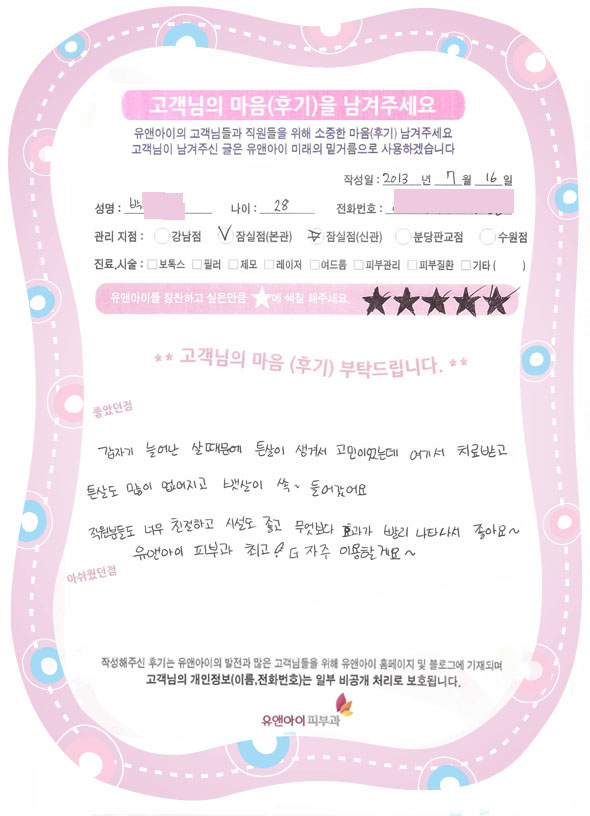 고객님의 마음(후기)을 남겨주세요
유앤아이의 고객님들과 직원들을 위해 소중한 마음(후기) 남겨주세요
고객님이 남겨주신 글은 유앤아이 미래의 밑거름으로 사용하겠습니다
작성일 : 2013 년 7 월 16 일
성명 : 박 나이 : 28 전화번호 :
관리 지점 : 강남점 잠실점(본관) 잠실점(신관) 분당판교점 수원점
진료,시술 : 보톡스 필러 제모 레이저 여드름 피부관리 피부질환 기타 ( )
유앤아이를 칭찬하고 싶은만큼 ★에 색칠 해주세요. ★★★★★
** 고객님의 마음 (후기) 부탁드립니다. **
좋았던점
갑자기 늘어난 살때문에 튼살이 생겨서 고민이었는데 여기서 치료받고
튼살도 많이 없어지고 뱃살이 쏙~ 들어갔어요
직원분들도 너무 친절하고 시설도 좋고 무엇보다 효과가 빨리 나타나서 좋아요~
유앤아이 피부과 최고! 자주 이용할게요~
아쉬웠던점
작성해주신 후기는 유앤아이의 발전과 많은 고객님들을 위해 유앤아이 홈페이지 및 블로그에 기재되며
고객님의 개인정보(이름,전화번호)는 일부 비공개 처리로 보호됩니다.
유앤아이 피부과